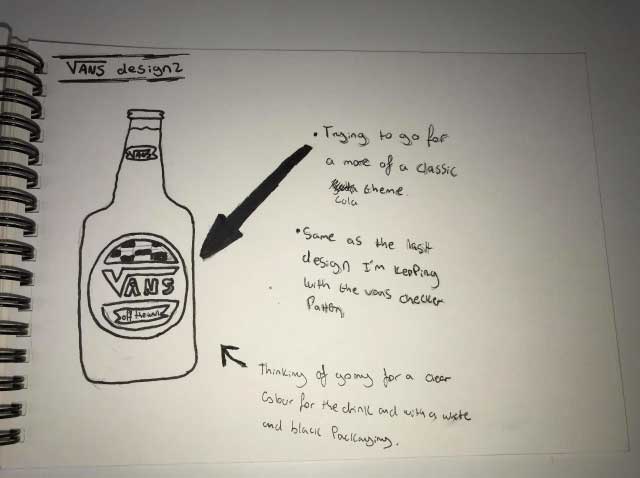 VANS design 2
VANS
VANS
off the wall
• Trying to go for
a more of a classic
theme.
cola
• Same as the last
design I'm keeping
with the vans checker
Pattern
Thinking of going for a clear
Colour for the drink and with a white
and black Packaging.